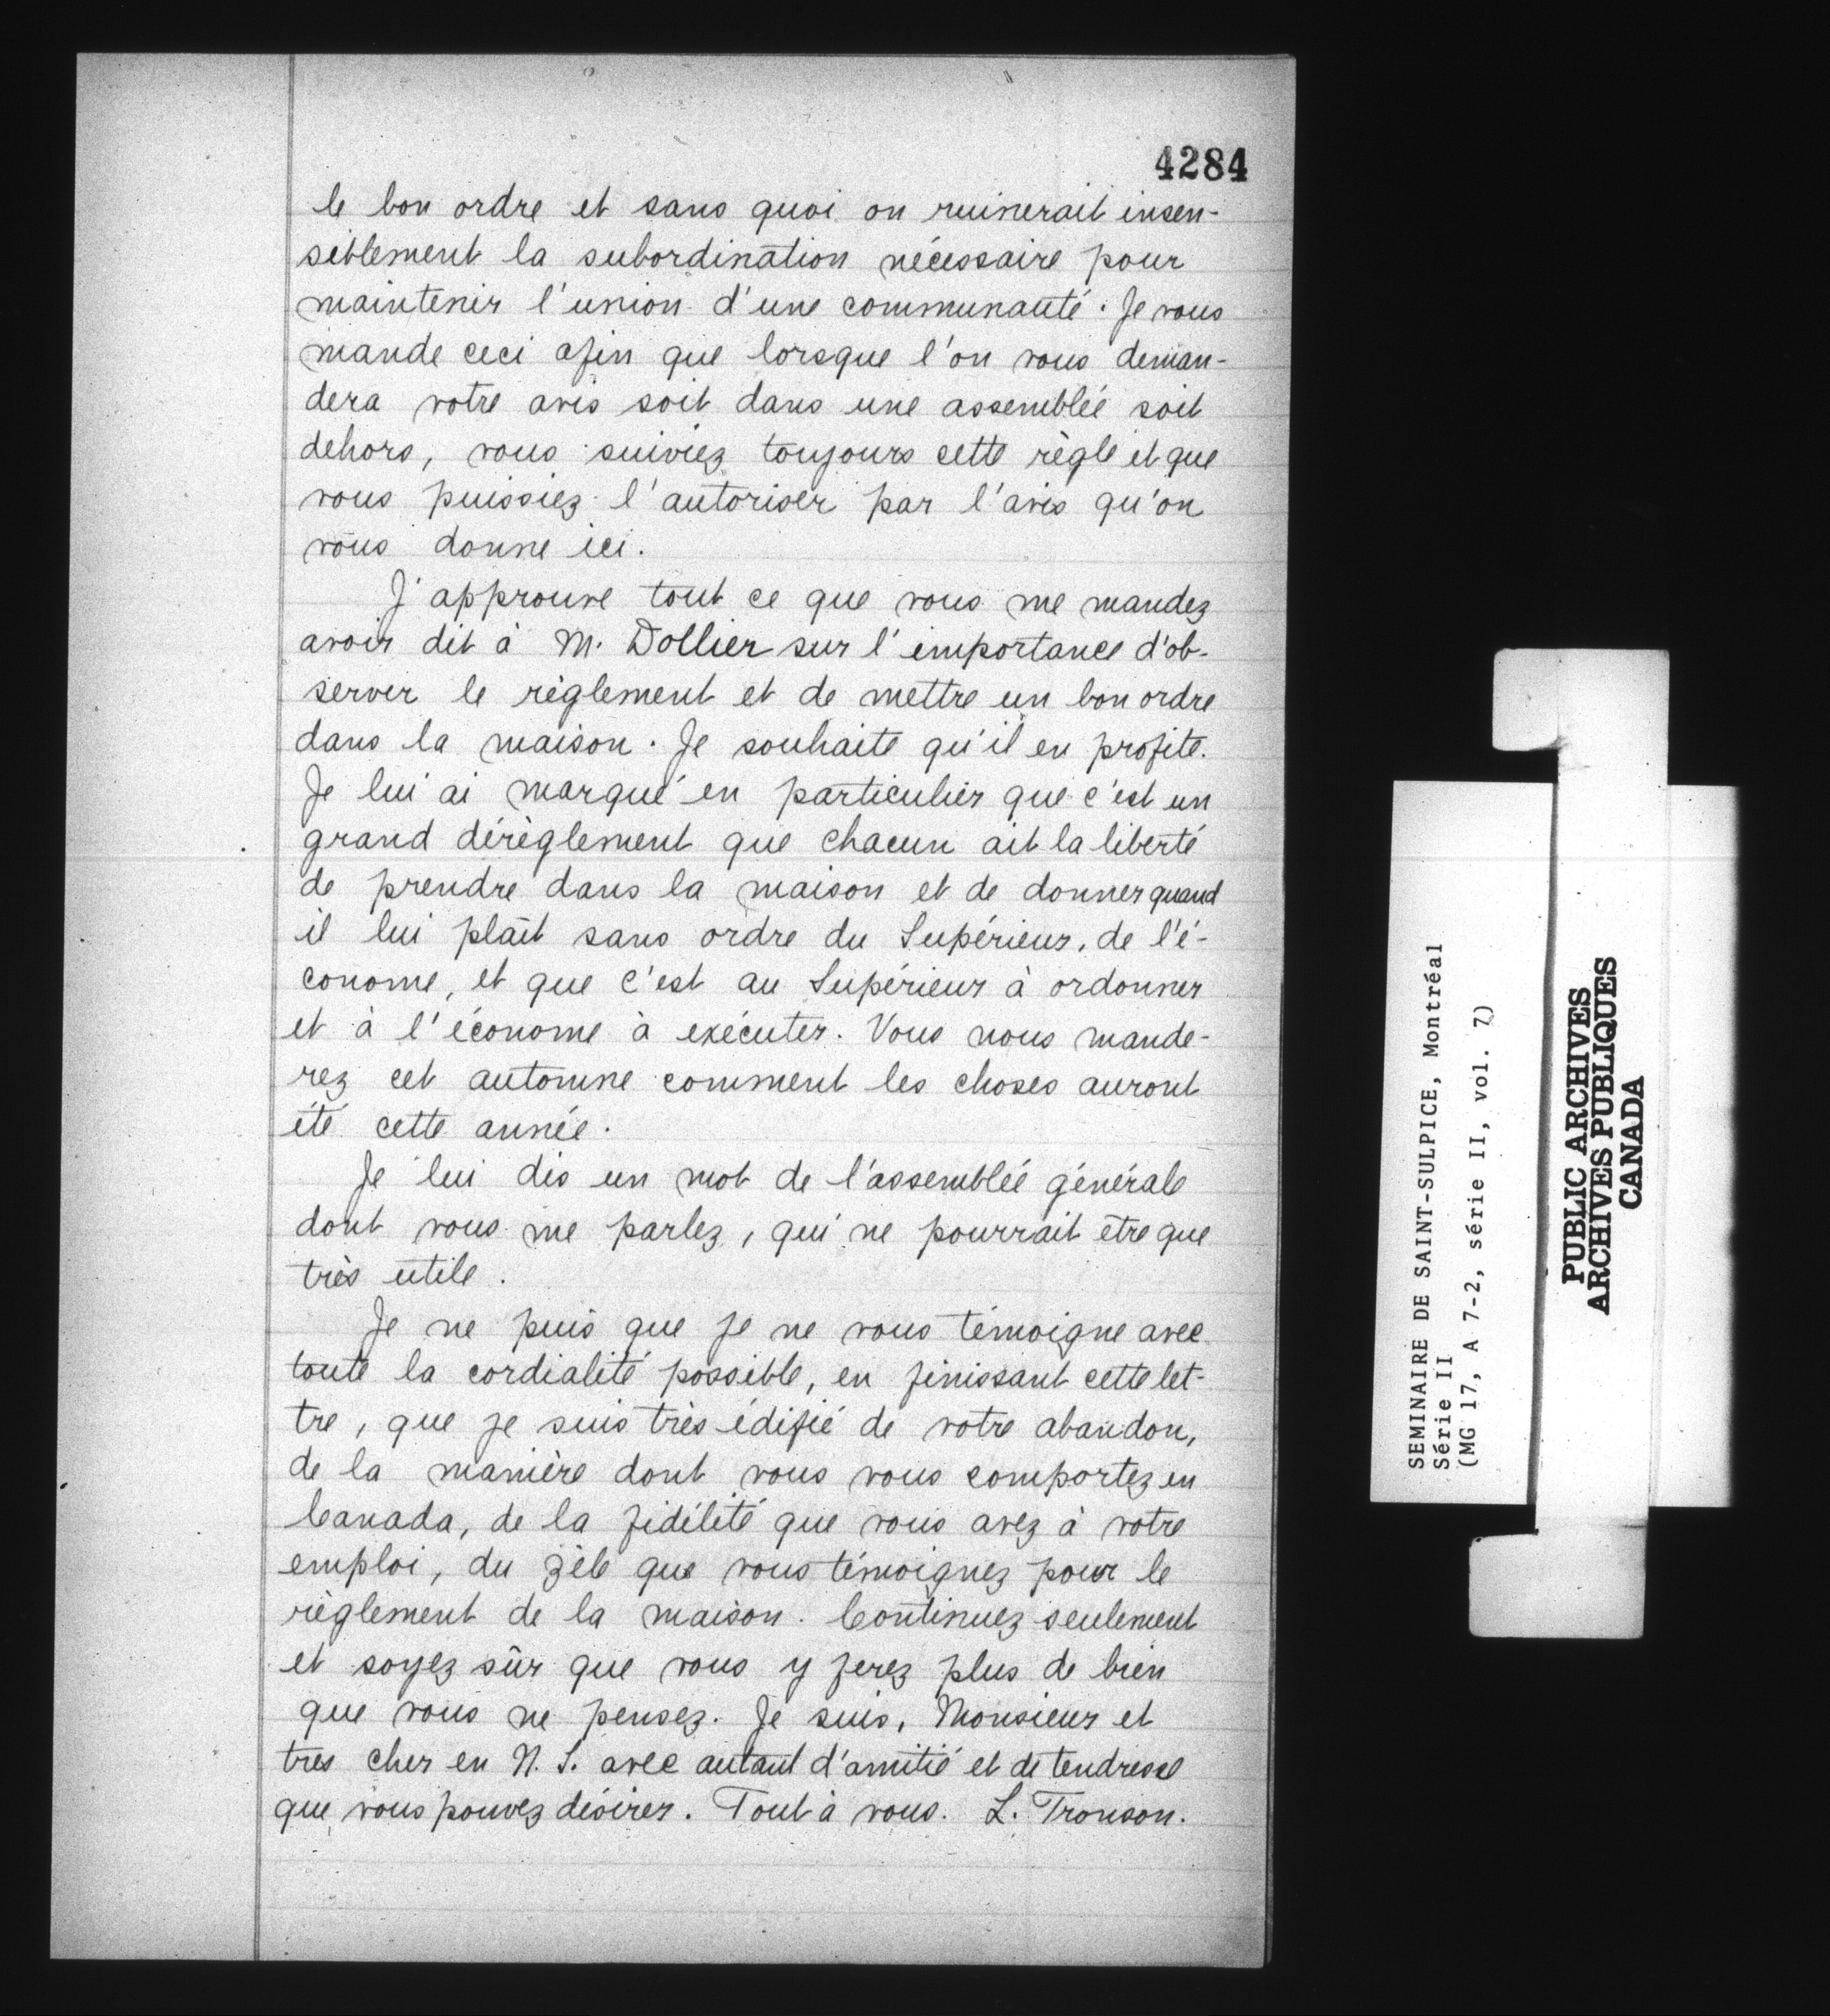 4284
le bon ordre et sans quoi on ruinerait insen-
siblement la subordination nécessaire pour
maintenir l'union d'une communauté. Je vous
mande ceci afin que lorsque l'on vous deman-
dera votre avis soit dans une assemblée soit
dehors, vous suiviez toujours cette règle et que
vous puissiez l'autoriser par l'avis qu'on
vous donne ici.
J'approuve tout ce que vous me mandez
avoir dit à M. Dollier sur l'importance d'ob-
server le règlement et de mettre un bon ordre
dans la maison. Je souhaite qu'il en profite.
Je lui ai marqué en particulier que c'est un
grand dérèglement que chacun ait la liberté
de prendre dans la maison et de donner quand
il lui plaît sans ordre du Supérieur, de l'é-
conome, et que c'est au Supérieur à ordonner
et à l'économe à exécuter. Vous nous mande-
rez cet automne comment les choses auront
été cette année.
Je lui dis un mot de l'assemblée générale
dont vous me parlez, qui ne pourrait etre que
très utile.
Je ne puis que je ne vous témoigne avec
toute la cordialité possible, en finissant cette let-
tre, que je suis très édifié de votre abandon,
de la manière dont vous vous comportez en
Canada, de la fidélité que vous avez à votre
emploi, du zèle que vous témoignez pour le
règlement de la maison. Continuez seulement
et soyez sûr que vous y ferez plus de bien
que vous ne pensez. Je suis, Monsieur et
tres cher en N. S. avec autant d'amitié et de tendresse
que vous pouvez désirer. Tout à vous. L. Tronson.
SEMINAIRE DE SAINT-SULPICE, Montréal
Série II
(MG 17, A 7-2, série II, vol. 7)
PUBLIC ARCHIVES
ARCHIVES PUBLIQUES
CANADA